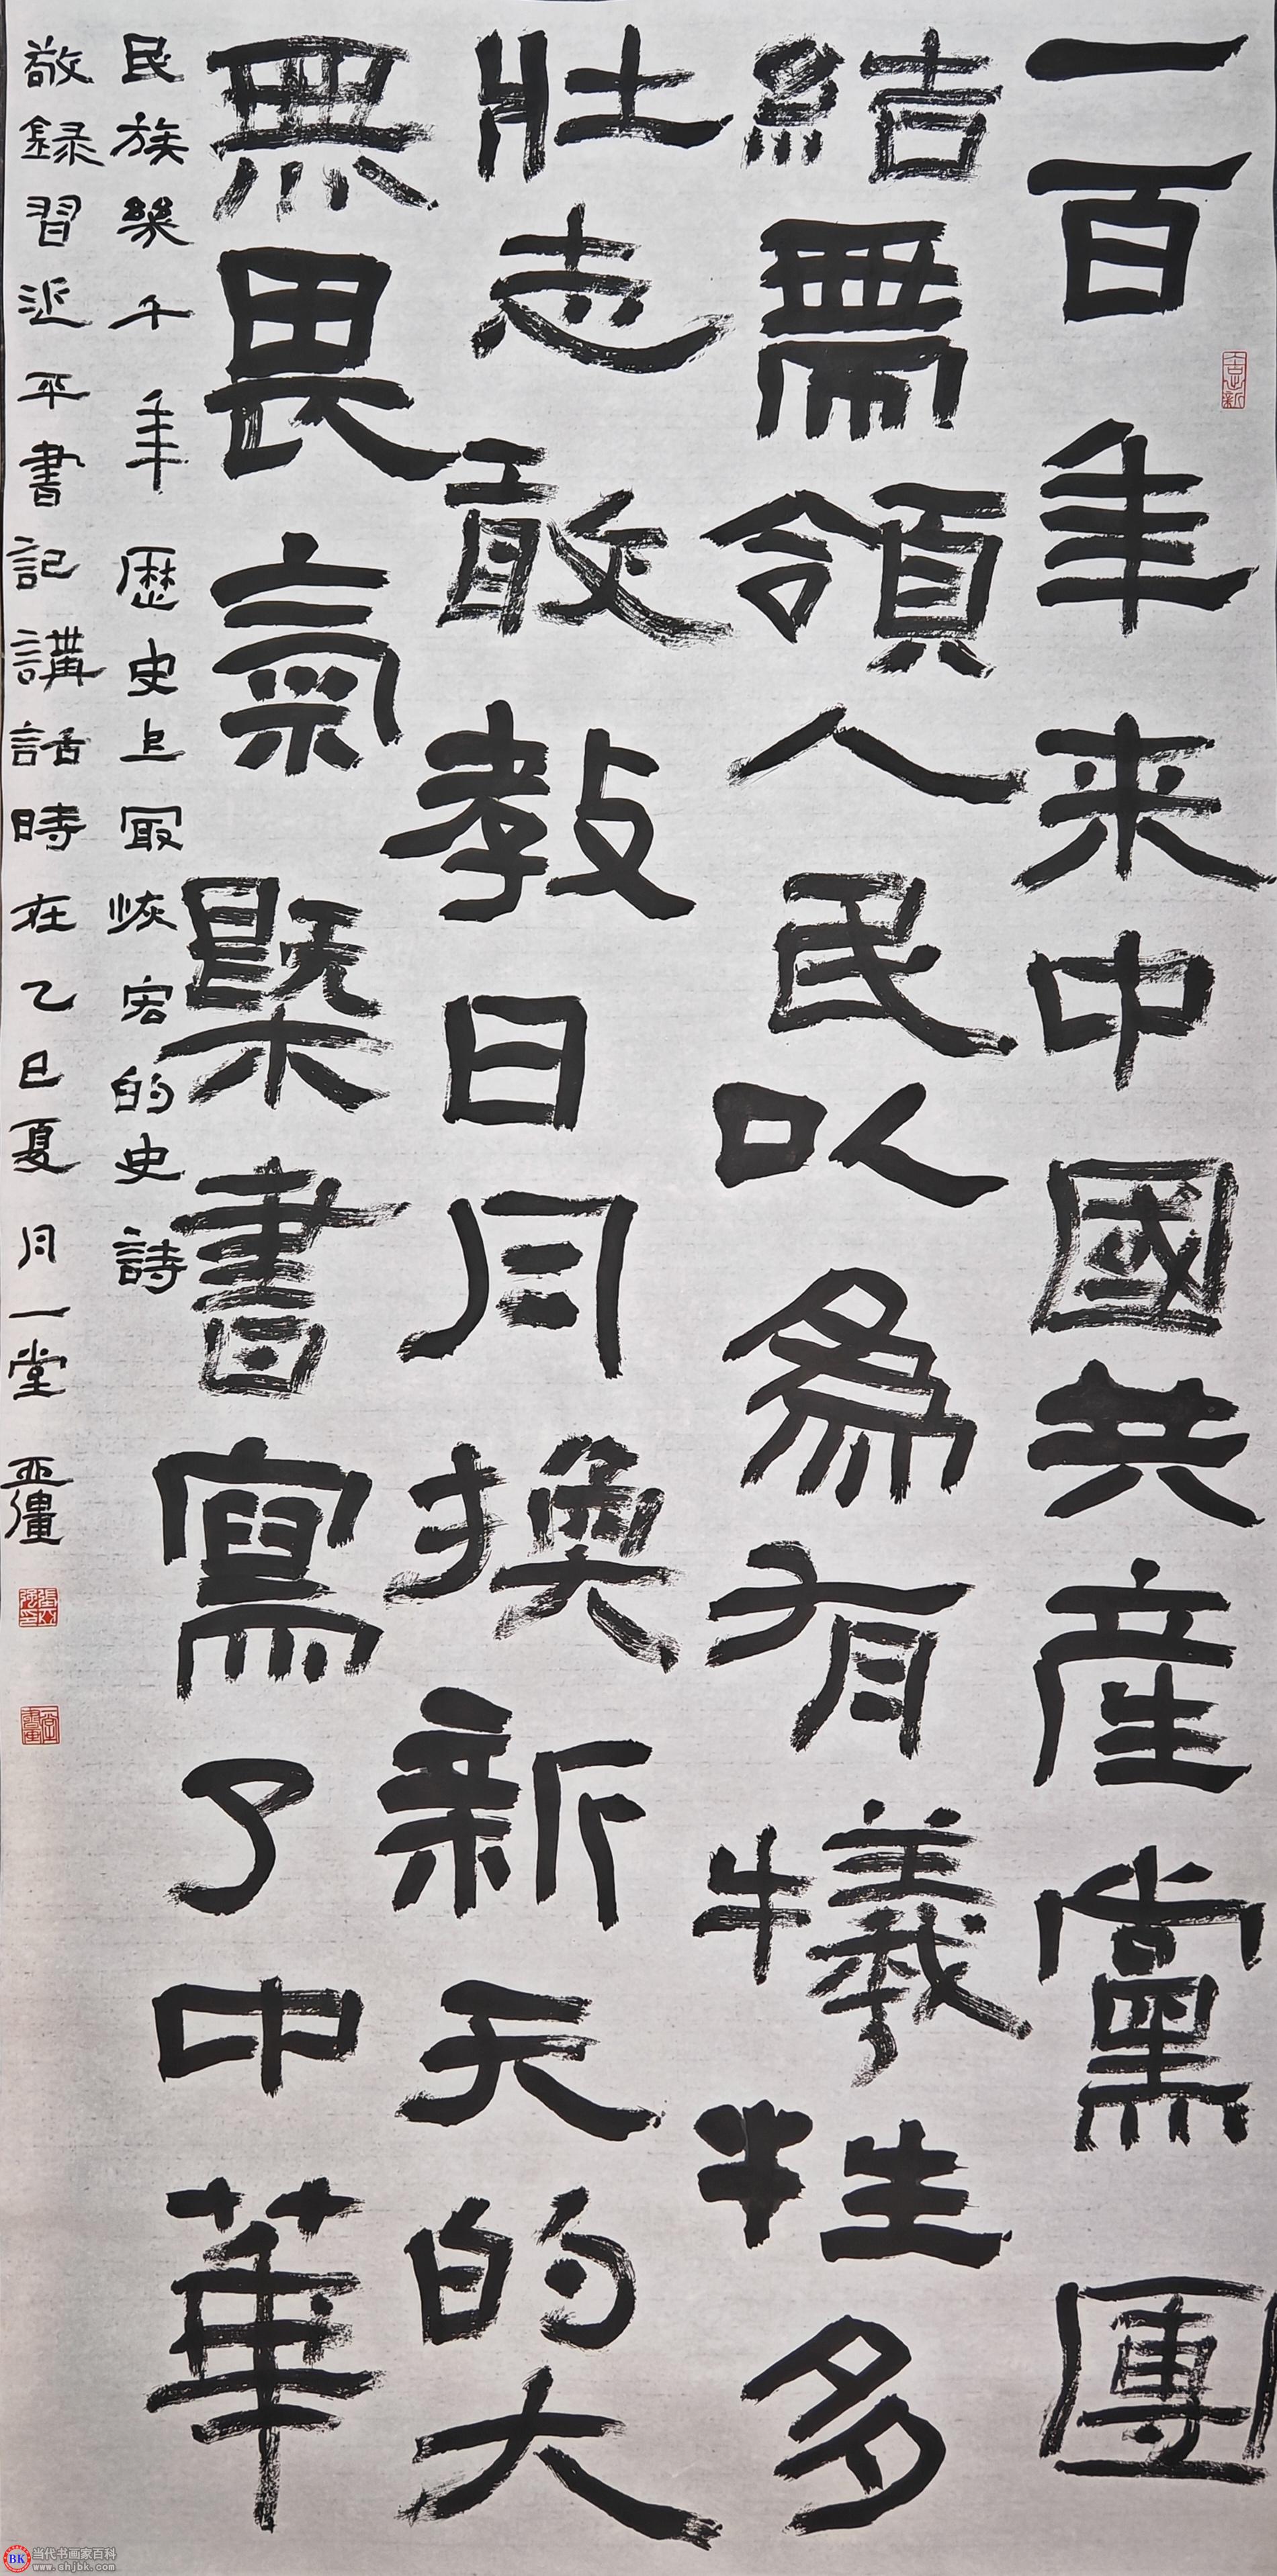 一百年来中國共産黨團
結帶領人民以為有犧牲多
壯志敢教日月換新天的大
無畏氣槩書寫了中華
民族幾千年歷史上冣恢宏的史詩
敬録習近平書記講話時在乙巳夏月一堂亞彊
BK
当代书画家百科
www.shjbk.com